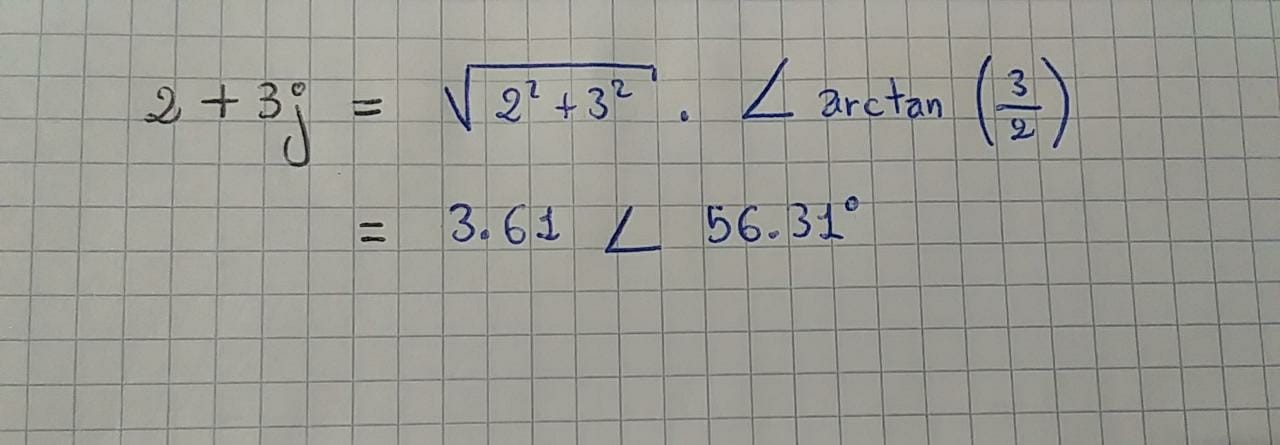 2 + 3j = √(2² + 3²) . ∠ arctan (3/2)
= 3.61 ∠ 56.31°